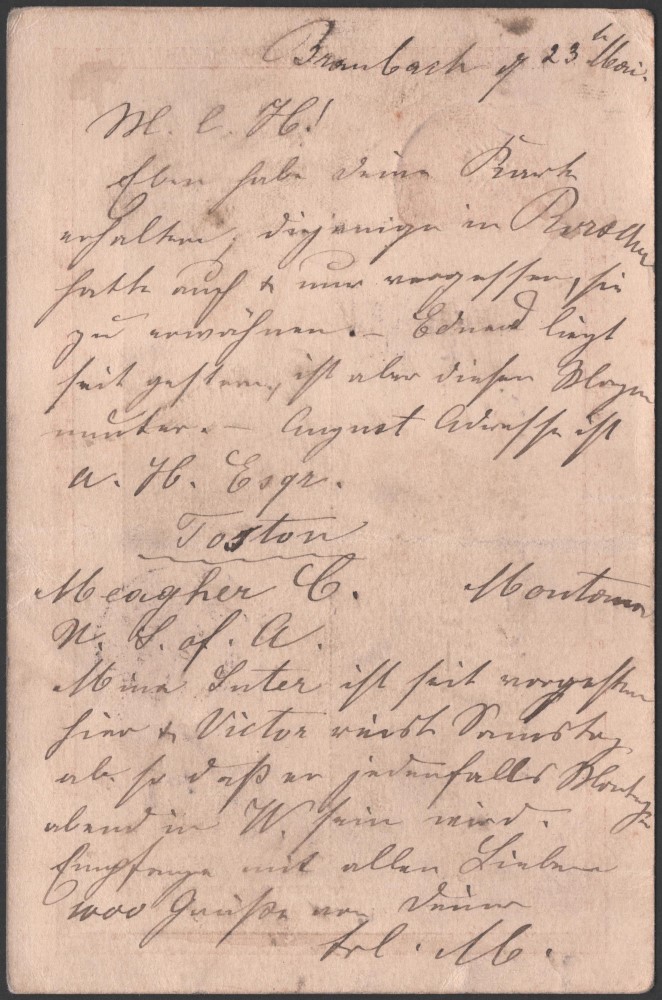 Braubach d 23ten Mai.
M. l. H!
Eben habe Deine Karte
erhalten, diejenige in
hatte auch & nur vergessen, sie
zu erwähnen. – Eduard liegt
seit gestern, ist aber diesen Morgen
munter. – August Adresse ist
A. H. Esqr.
Toston
Meagher C. Montana
N. S. of. A.
Mina Suter ist seit vorgestern
hier & Victor reist Samstag
ab. so daß er jedenfalls Montag
abend in W. sein wird.
Empfange mit allen Lieben
1000 Grüße von Deiner
M.